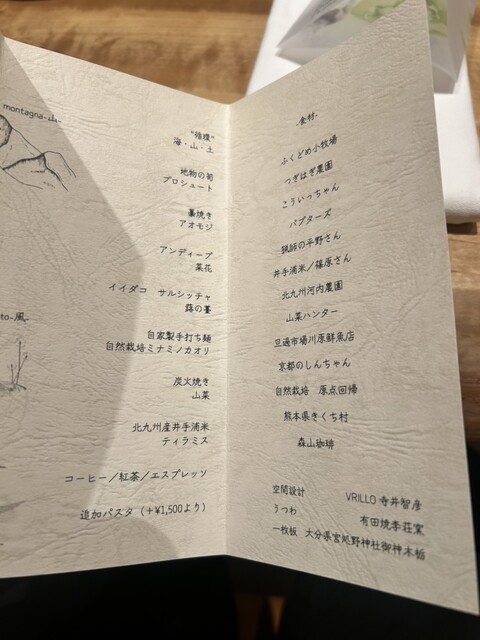 montagna-山-
to-風-
"循環"
海・山・土
地物の筍
プロシュート
藁焼き
アオモジ
アンディーブ
菜花
イイダコ サルシッチャ
蕗の薹
自家製手打ち麺
自然栽培ミナミノカオリ
炭火焼き
山菜
北九州産井手浦米
ティラミス
コーヒー／紅茶／エスプレッソ
追加パスタ（+¥1,500より）
-食材-
ふくどめ小牧場
つぎはぎ農園
こういっちゃん
バブターズ
猟師の平野さん
井手浦米／篠原さん
北九州河内農園
山菜ハンター
旦過市場川原鮮魚店
京都のしんちゃん
自然栽培 原点回帰
熊本県きくち村
森山珈琲
空間設計 VRILLO 寺井智彦
うつわ 有田焼李荘窯
一枚板 大分県宮処野神社御神木栃